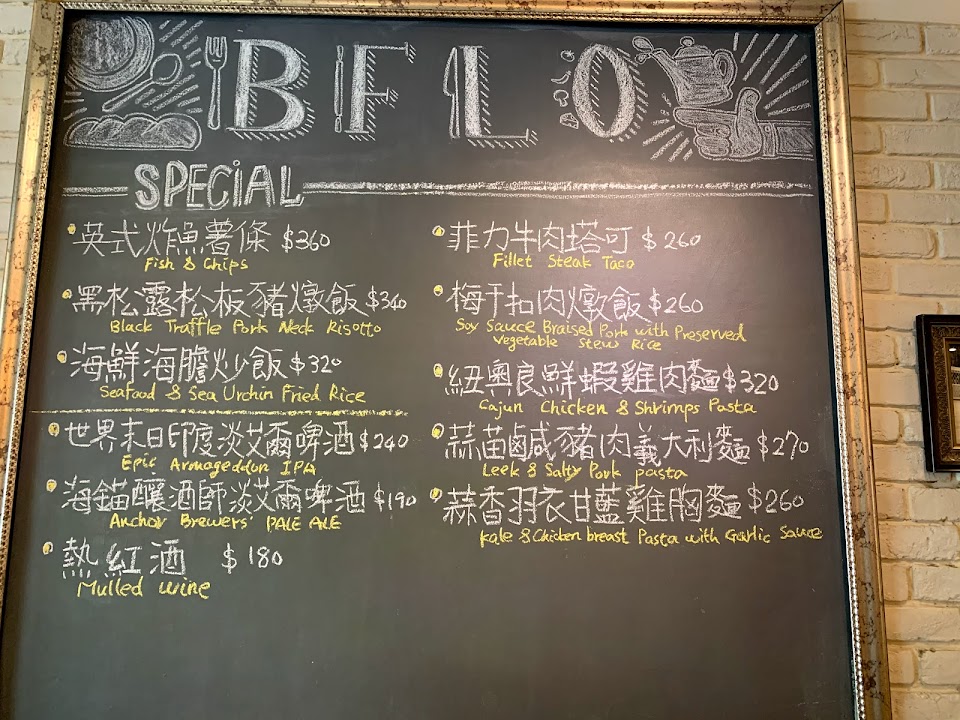 BFLO
SPECIAL
英式炸魚薯條 $360
Fish & Chips
黑松露松板豬燉飯 $340
Black Traffle Pork Neck Risotto
海鮮海膽炒飯 $320
Seafood & Sea Urchin Fried Rice
世界末日印度淡艾爾啤酒 $240
Epic Armageddon IPA
海錨釀酒師淡艾爾啤酒 $190
Anchor Brewers' PALE ALE
熱紅酒 $180
Mulled wine
菲力牛肉塔可 $260
Fillet Steak Taco
梅干扣肉燉飯 $260
Soy Sauce Braised Pork with Preserved
Vegetable Stew Rice
紐奧良鮮蝦雞肉麵 $320
Cajun Chicken & Shrimps Pasta
蒜苗鹹鹹豬肉義大利麵 $270
Leek & Salty Pork pasta
蒜香羽衣甘藍雞胸麵 $260
kale & Chicken breast Pasta with Garlic Sauce